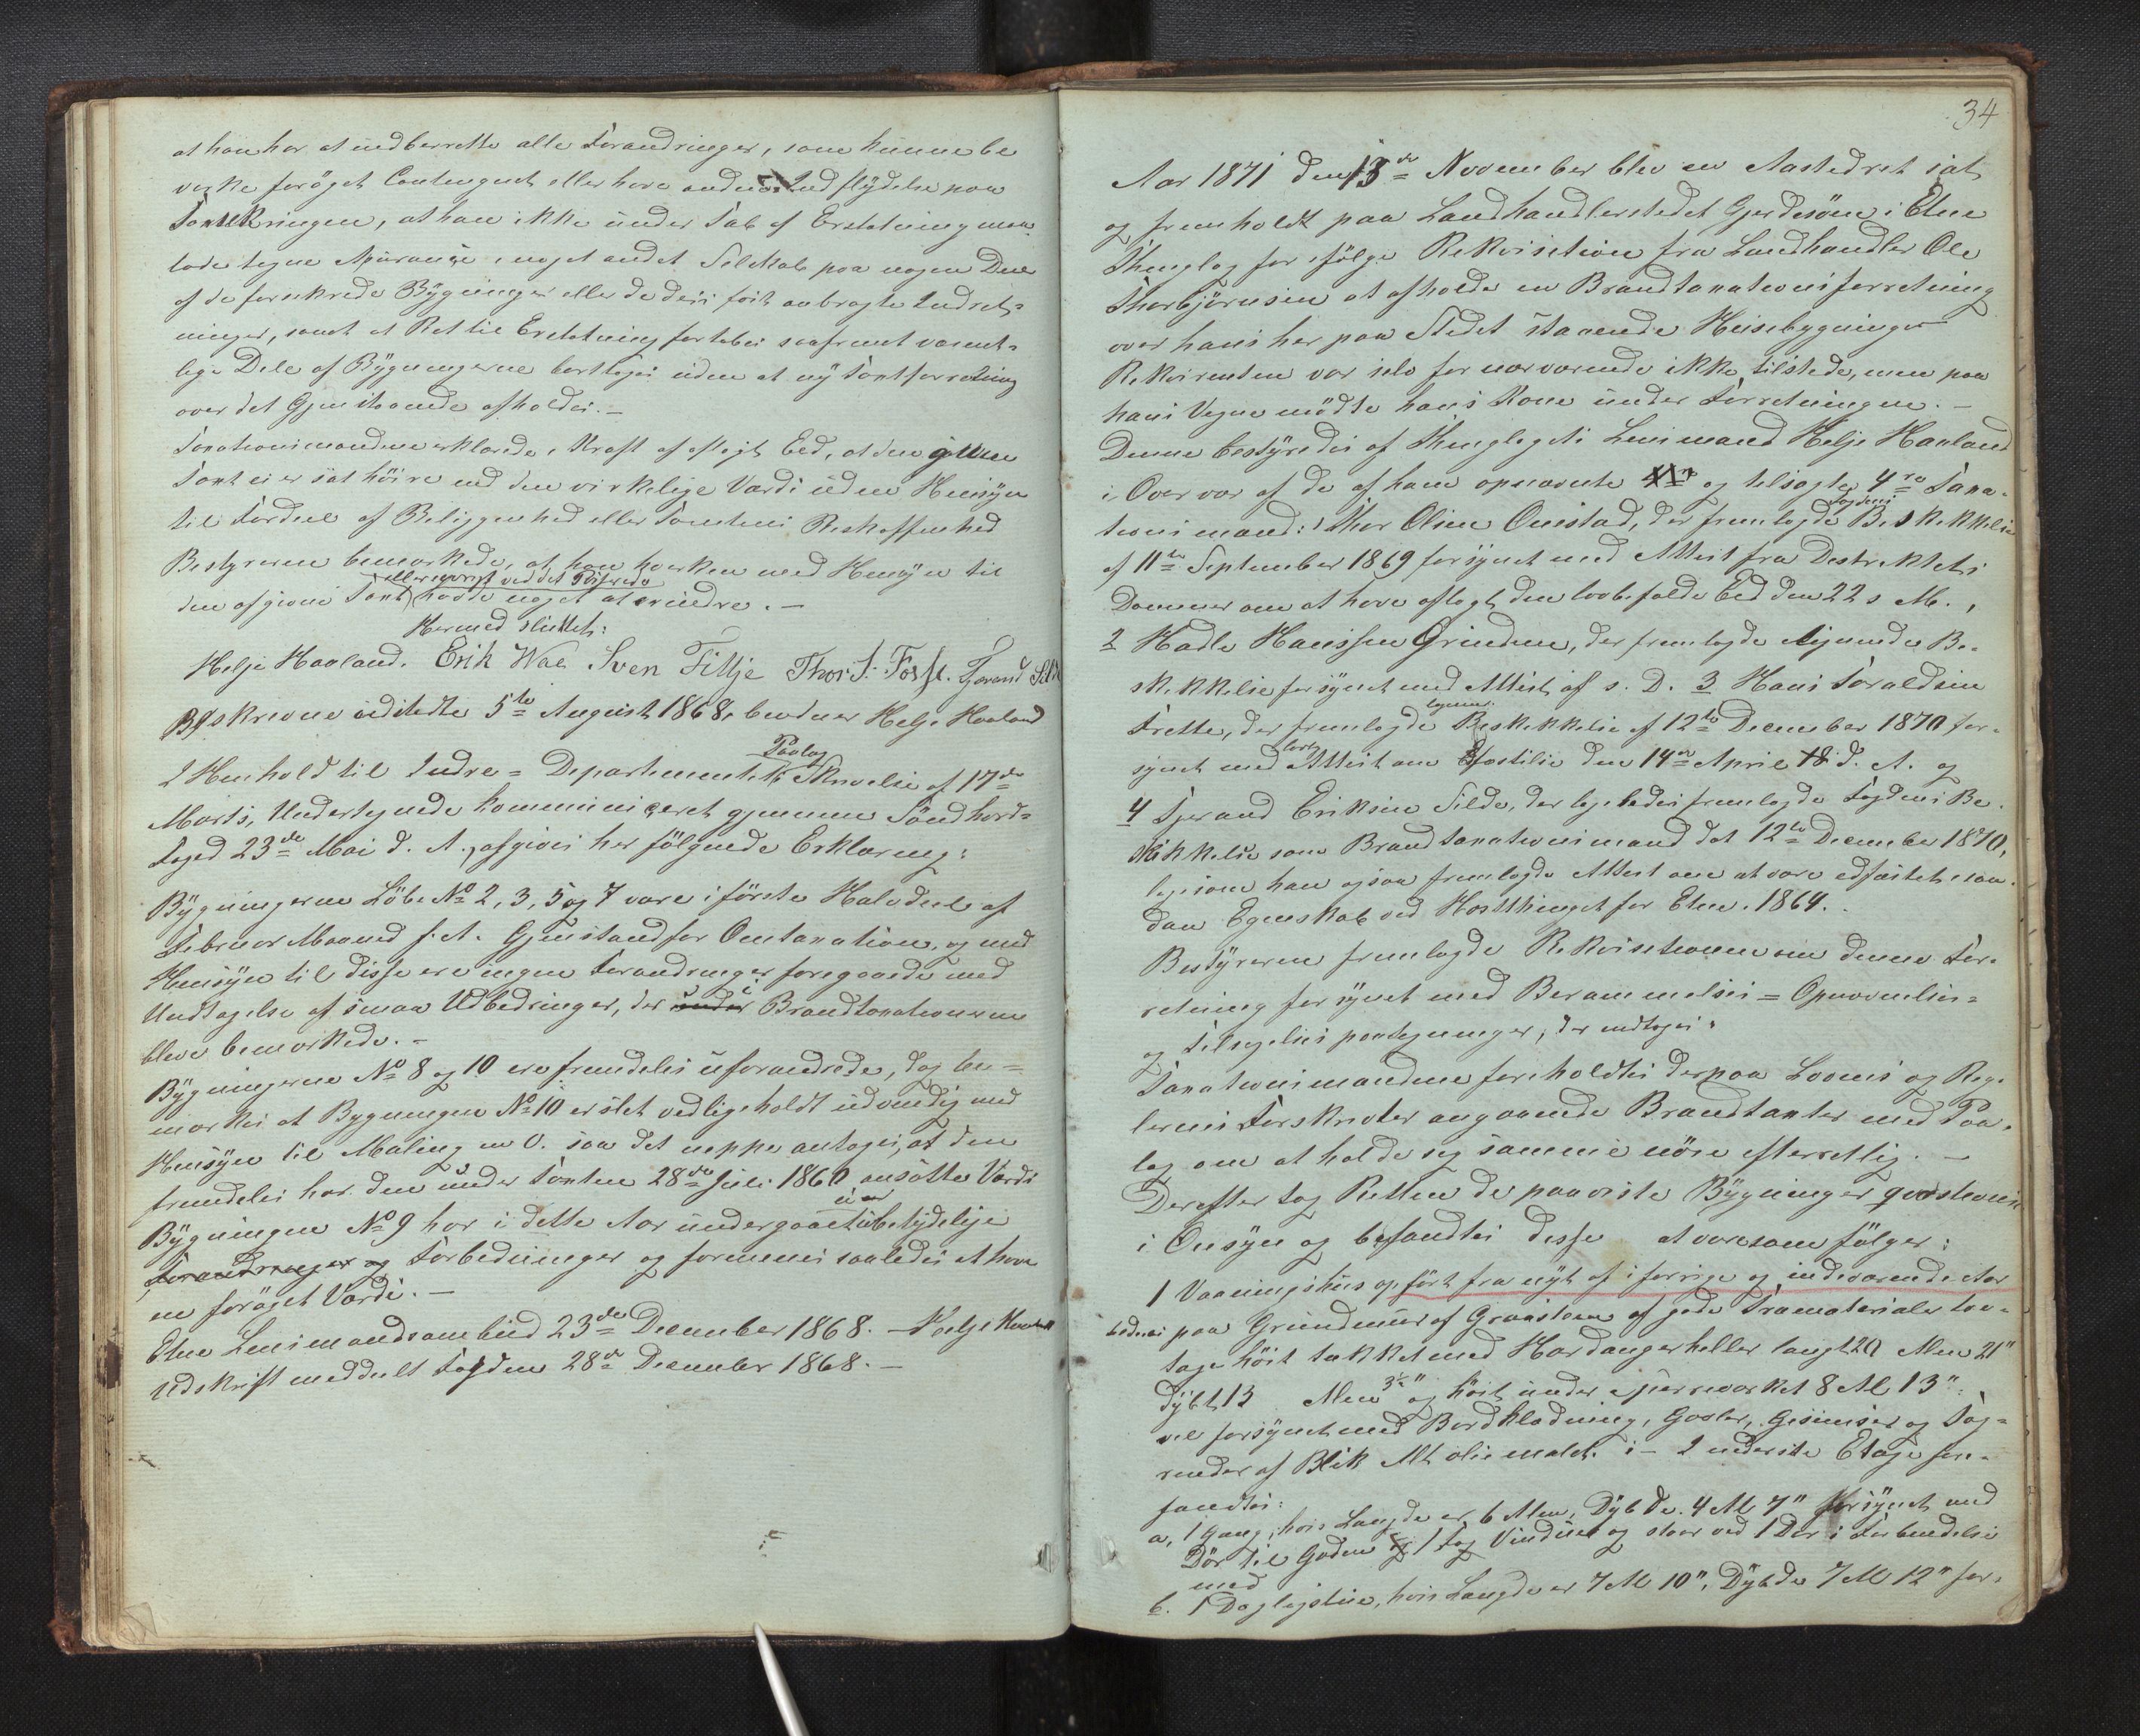 at han har at indberette alle Forandringer, som kunne be
virke forøget Contingent eller have anden Indflydelse paa
Forsikringen, at han ikke under Tab af Erstatning maa
lade tegne Assurance i noget andet Selskab paa nogen Deel
af de forsikrede Bygninger eller de deri fast anbragte Indret-
ninger, samt at Ret til Erstatning fortabes saafremt væsent-
lige Dele af Bygningerne borttages uden at ny Taxtforretning
over det Gjenstaaende afholdes. -
Taxationsmændene erklærede i Kraft af aflagt Eed, at den givne
Taxt ei er sat høire end den virkelige Værdi uden Hensyn
til Fordeel af Beliggenhed eller Tomtens Beskaffenhed
Bestyreren bemærkede, at han hverken med Hensyn til
eller øvrigt ved det Passerede
den afgivne Taxt havde noget at erindre. -
Hermed sluttet:
Helje Haaland. Erik Wae Sven Fittje Thor S. Fosse. Tjerand Silde
Beskrevne udstedte 5te August 1868, bevidner Helje Haaland
Paalæg
I Henhold til Indre-Departementets Skrivelse af 17de
Marts, Undertegnede kommuniceret gjennem Søndhord-
Foged 23de Mai d. A., afgives her følgende Erklæring:
Bygningerne Løbe No 2, 3, 5 og 7 vare i første Halvdeel af
Februar Maaned f. A. Gjenstand for Omtaxation, og med
Hensyn til disse ere ingen Forandringer foregaaede med
Undtagelse af smaa Udbedringer, der under i Brandtaxationerne
bleve bemærkede. -
Bygningerne No 8 og 10 ere fremdeles uforandrede, dog be-
mærkes at Bygningen No 10 er slet vedligeholdt udvendig med
Hensyn til Maling m. v. saa det neppe antages, at den
fremdeles har den under Taxten 28de Juli 1860 ansatte Værdi
Bygningen No 9 har i dette Aar undergaaet ubetydelige
Forandringer og Forbedringer og formenes saaledes at have
en forøget Værdi. -
Etne Lensmandsombud 23de December 1868. - Helje Haaland
Udskrift meddeelt Fogden 28de December 1868. -
34
Aar 1871 den 13de November blev en Aastedret sat
og fremholdt paa Landhandlerstedet Gjerdesøen i Etne
Thinglag for ifølge Rekvisition fra Landhandler Ole
Thorbjørnsen at afholde en Brandtaxationsforretning
over hans her paa Stedet staaende Huusebygninger
Rekvirenten var selv for nærværende ikke tilstede, men paa
hans Vegne mødte hans Kone under Forretningen. -
Denne bestyredes af Thinglagets Lensmand Helje Haaland
i Overvær af de af ham opnævnte og tilsagte 4re Taxa-
Fogdens
tionsmænd: 1 Thor Olsen Onestad, der fremlagde Beskikkelse
af 11te September 1869 forsynet med Attest fra Destriktets
Dommer om at have aflagt den lovbefalede Eed den 22 s. M.,
2 Hadle Hansen Grinden, der fremlagde lignende Be-
skikkelse forsynet med Attest af s. D. 3 Hans Toraldsen
ligesom
Frette, der fremlagde Beskikkelse af 12te December 1870 for-
synet med Attest om Edfæstelse den 14de April d. A. og
4 Tjerand Eriksen Silde, der ligeledes fremlagde Fogdens Be-
skikkelse som Brandtaxationsmand dat 12te December 1870,
ligesom han ogsaa fremlagde Attest om at være edfæstet i saa-
dan Egenskab ved Høstthinget for Etne 1864.
Bestyreren fremlagde Rekvisitionen om denne For-
retning forsynet med Berammelses- Opnævnelses-
og Tilsigelses paategninger, der indtages:
Taxationsmændene foreholdtes derpaa Lovens og Reg-
lernes Forskrivter angaaende Brandtaxter med Paa-
læg om at holde sig samme nøie efterrettelig. -
Derefter tog Retten de paaviste Bygninger qvæstionis
i Øiesyn og befandtes disse at være som følger:
1 Vaaningshus opført fra nyt af i forrige og indeværende Aar
paa Grundmuur af Graasteen af gode Træmaterialer toe-
tage høit tækket med Hardangerheller langt 20 Alen 21"
dybt 13 Alen 3½" og høit under Sperreværket 8 Al 13"
vel forsynet med Bordklædning, Gavler, Gesimser og Tag-
render af Blik Alt oliemalet. - I underste Etage fore-
fandtes:
a, 1 Gang, hvis Længde er 6 Alen, Dybde 4 Al 7" forsynet med
Dør til Gaden 1 Fag Vindue og staar ved 1 Dør i Forbindelse
med
b. 1 Dagligstue, hvis Længde er 7 Al 10", Dybde 7 Al 12" for-